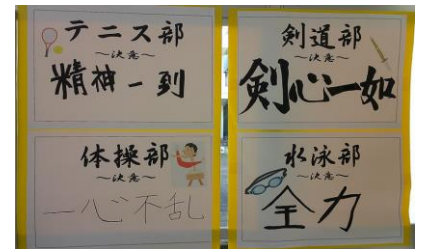 テニス部
～決意～
精神一到
剣道部
～決意～
剣心一如
体操部
～決意～
一心不乱
水泳部
～決意～
全力